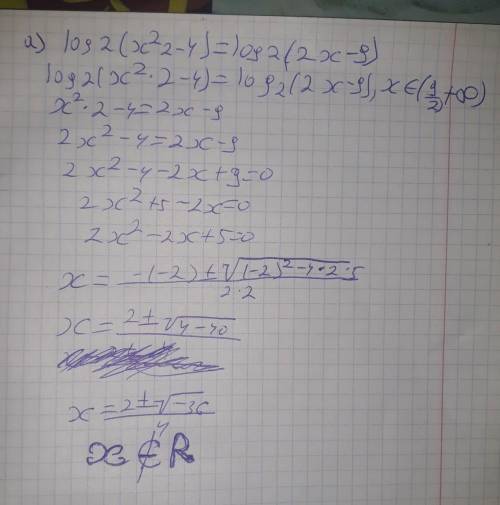 а) log 2 (x² 2-4)=log 2 (2x-9)
log2(x²·2-4)=log₂(2x-9), x∈(9/2,+∞)
x²·2-4=2x-9
2x²-4=2x-9
2x²-4-2x+9=0
2x²+5-2x=0
2x²-2x+5=0
x = -(-2)±√(-2)²-4·2·5 / 2·2
x = 2±√4-40
x = 2±√-36 / 4
x ∉ R